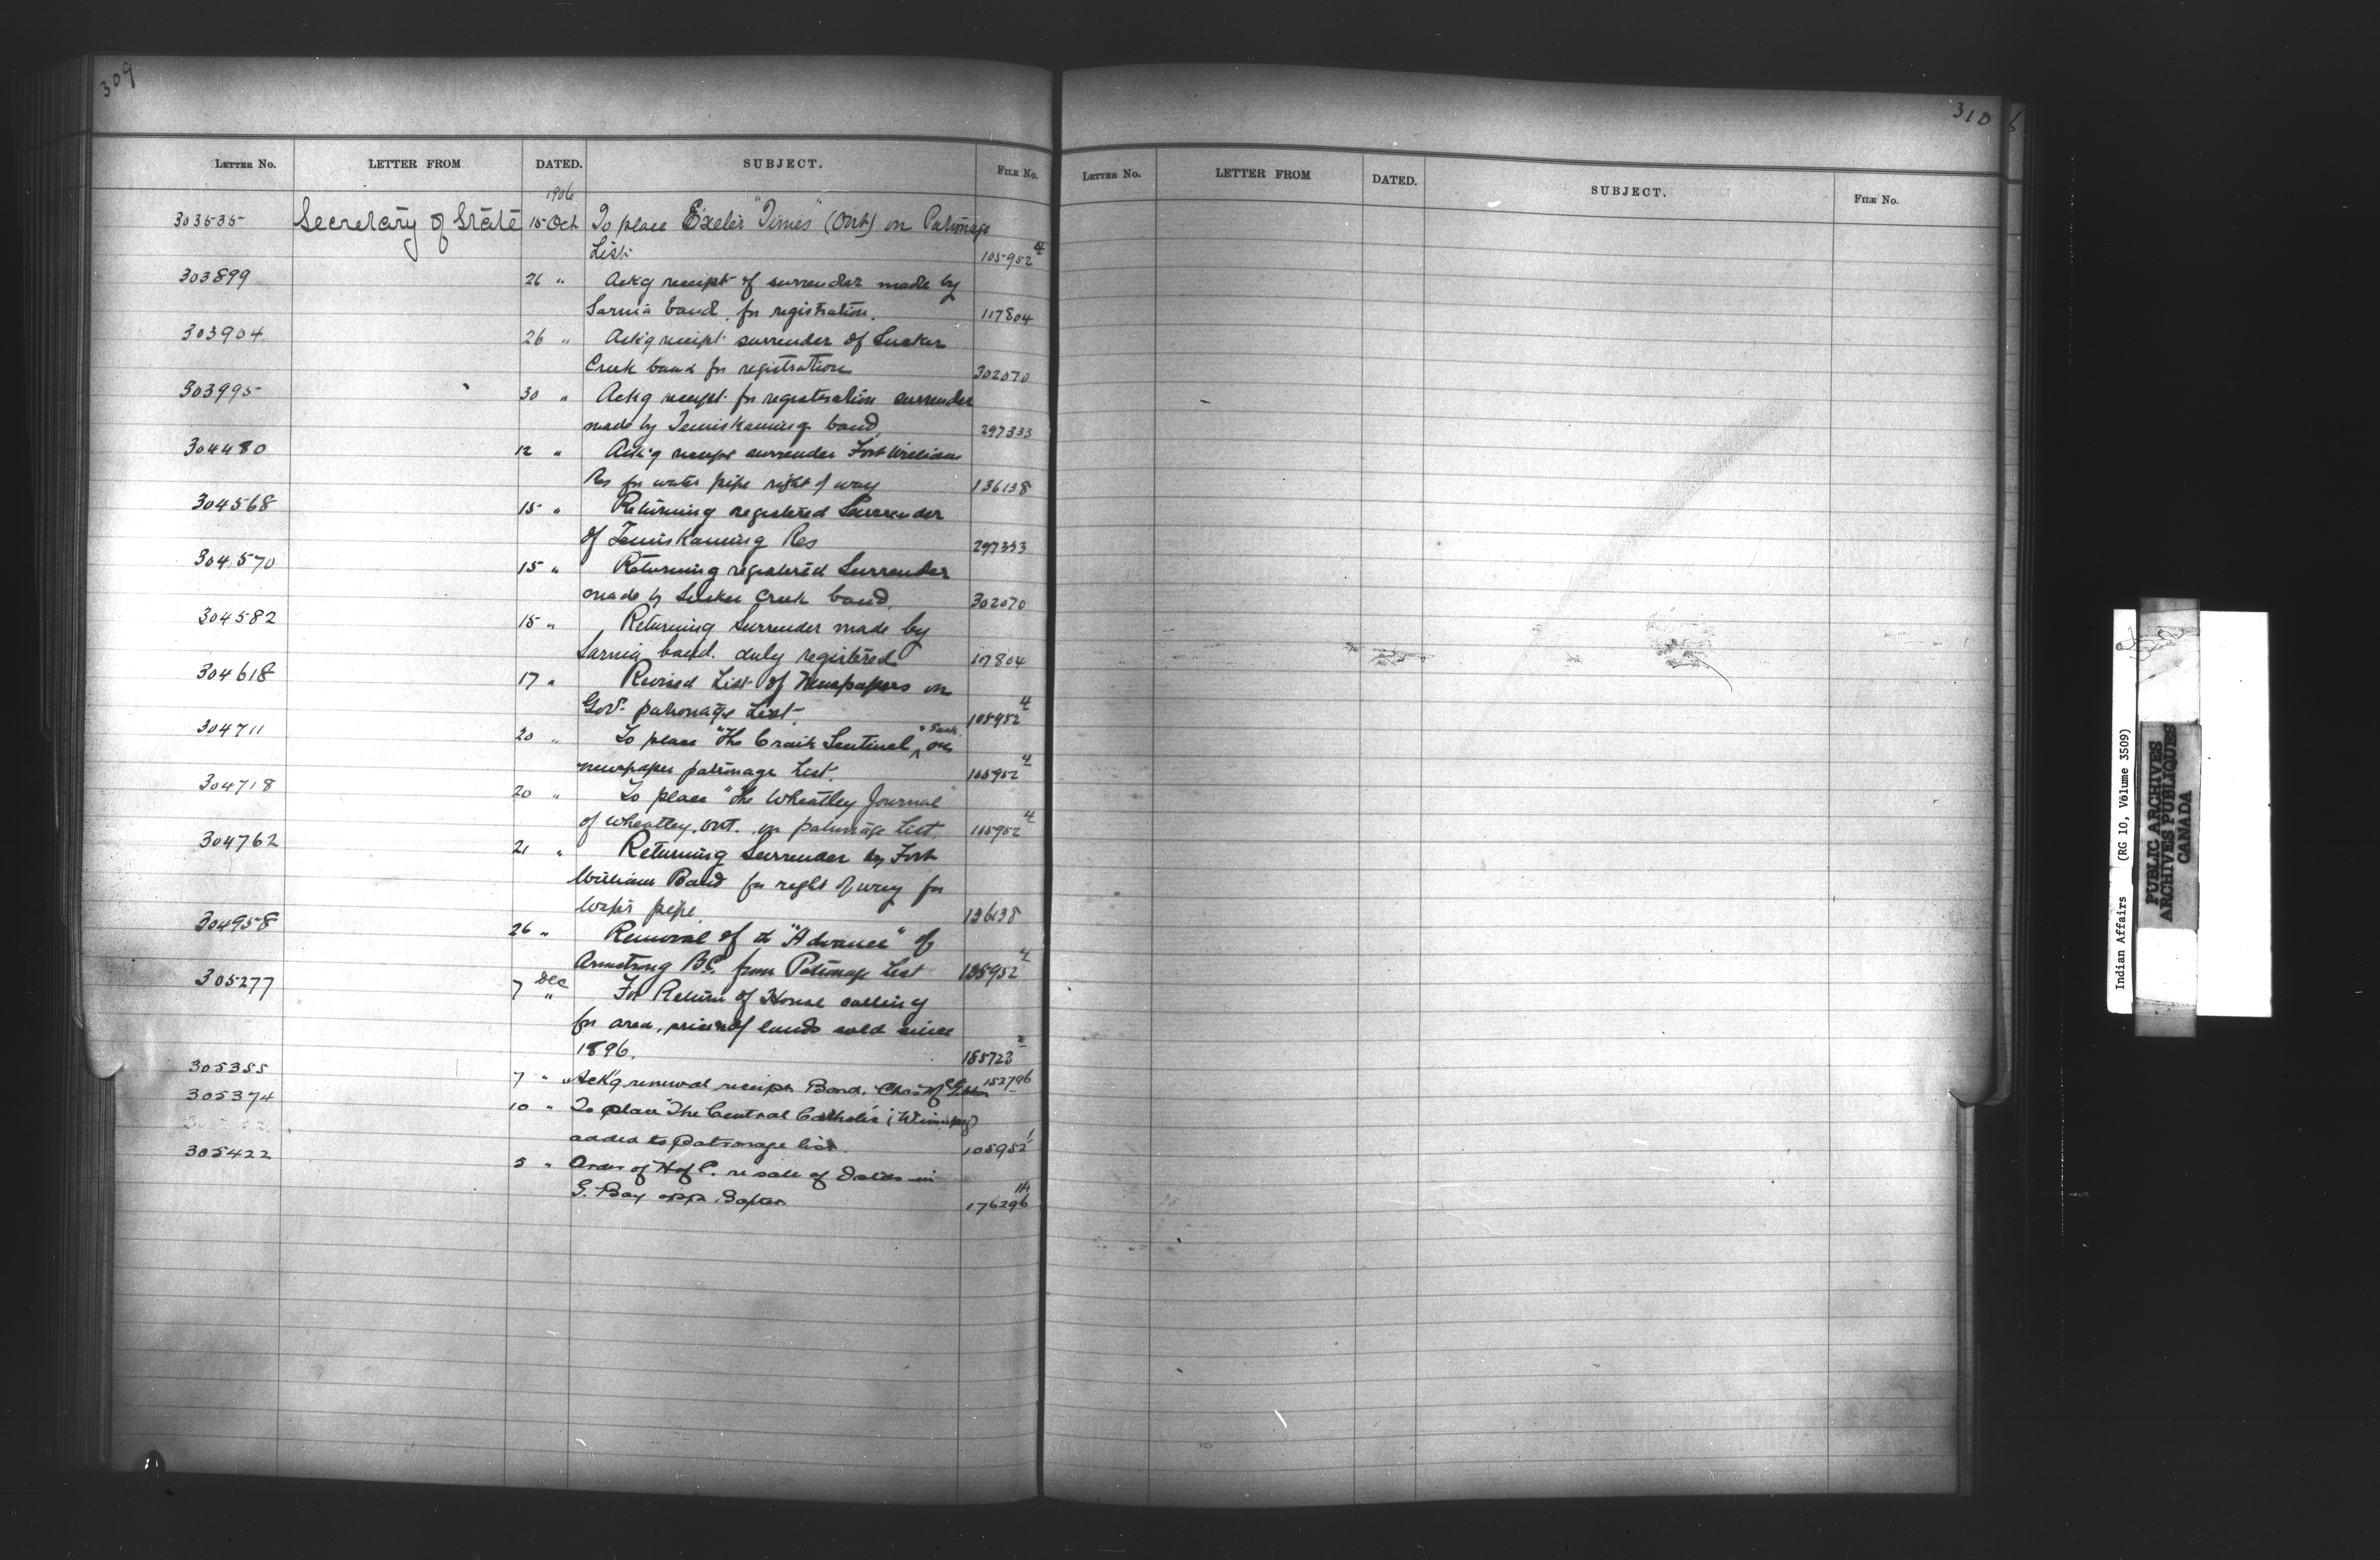 309
LETTER NO. LETTER FROM DATED. SUBJECT. FILE NO.
1906
303535 Secretary of State 15 Oct To place Exeter "Times" (Ont) on Patronage
List 105952 4
303899 26 " Ackg receipt of surrender made by
Sarnia band, for registration. 117804
303904 26 " Ack'g receipt surrender of Sucker
Creek band for registration 302070
303995 30 " Ack'g receipt for registration surrender
made by Temiskaming band 297333
304480 12 " Ack'g receipt surrender Fort William
Res for water pipe right of way 136138
304568 15 " Returning registered Surrender
of Temiskaming Res 297333
304570 15 " Returning registered Surrender
made by Sucker Creek band, 302070
304582 15 " Returning Surrender made by
Sarnia band. duly registered 117804
304618 17 " Revised List of Newspapers on
Govt. patronage List. 105952 4
304711 20 " To place "The Craik Sentinel," Sask. on
newspaper patronage List. 105952 4
304718 20 " To place "The Wheatley Journal"
of Wheatley, Ont. on patronage List. 115952 4
304762 21 " Returning Surrender by Fort
William Band for right of way for
Water pipe. 136138
304958 26 " Removal of the "Advance" of
Armstrong B.C. from Patronage List 105952 4
305277 7 Dec " For Return of House calling
for area, price of lands sold since
1896. 155723 2
305355 7 " Ack'g renewal receipt Bond. Chas 152796
305374 10 " To place The Central Catholic (Winnipeg)
added to patronage list. 105952 1
305422 5 " Order of H of C. re sale of Islds in
G. Bay opp. 176296 1A
310
LETTER NO. LETTER FROM DATED. SUBJECT. FILE NO.
Indian Affairs (RG 10, Volume 3509)
PUBLIC ARCHIVES
ARCHIVES PUBLIQUES
CANADA